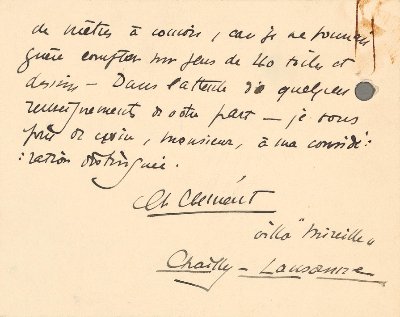 de mètres à couvrir, car je ne pourrai
guère compter sur plus de 40 toiles et
dessins – Dans l'attente de quelques
renseignements de votre part – je vous
prie de croire, monsieur, à ma considé-
:ration distinguée.
Ch Clément
villa "Mireille"
Chailly – Lausanne